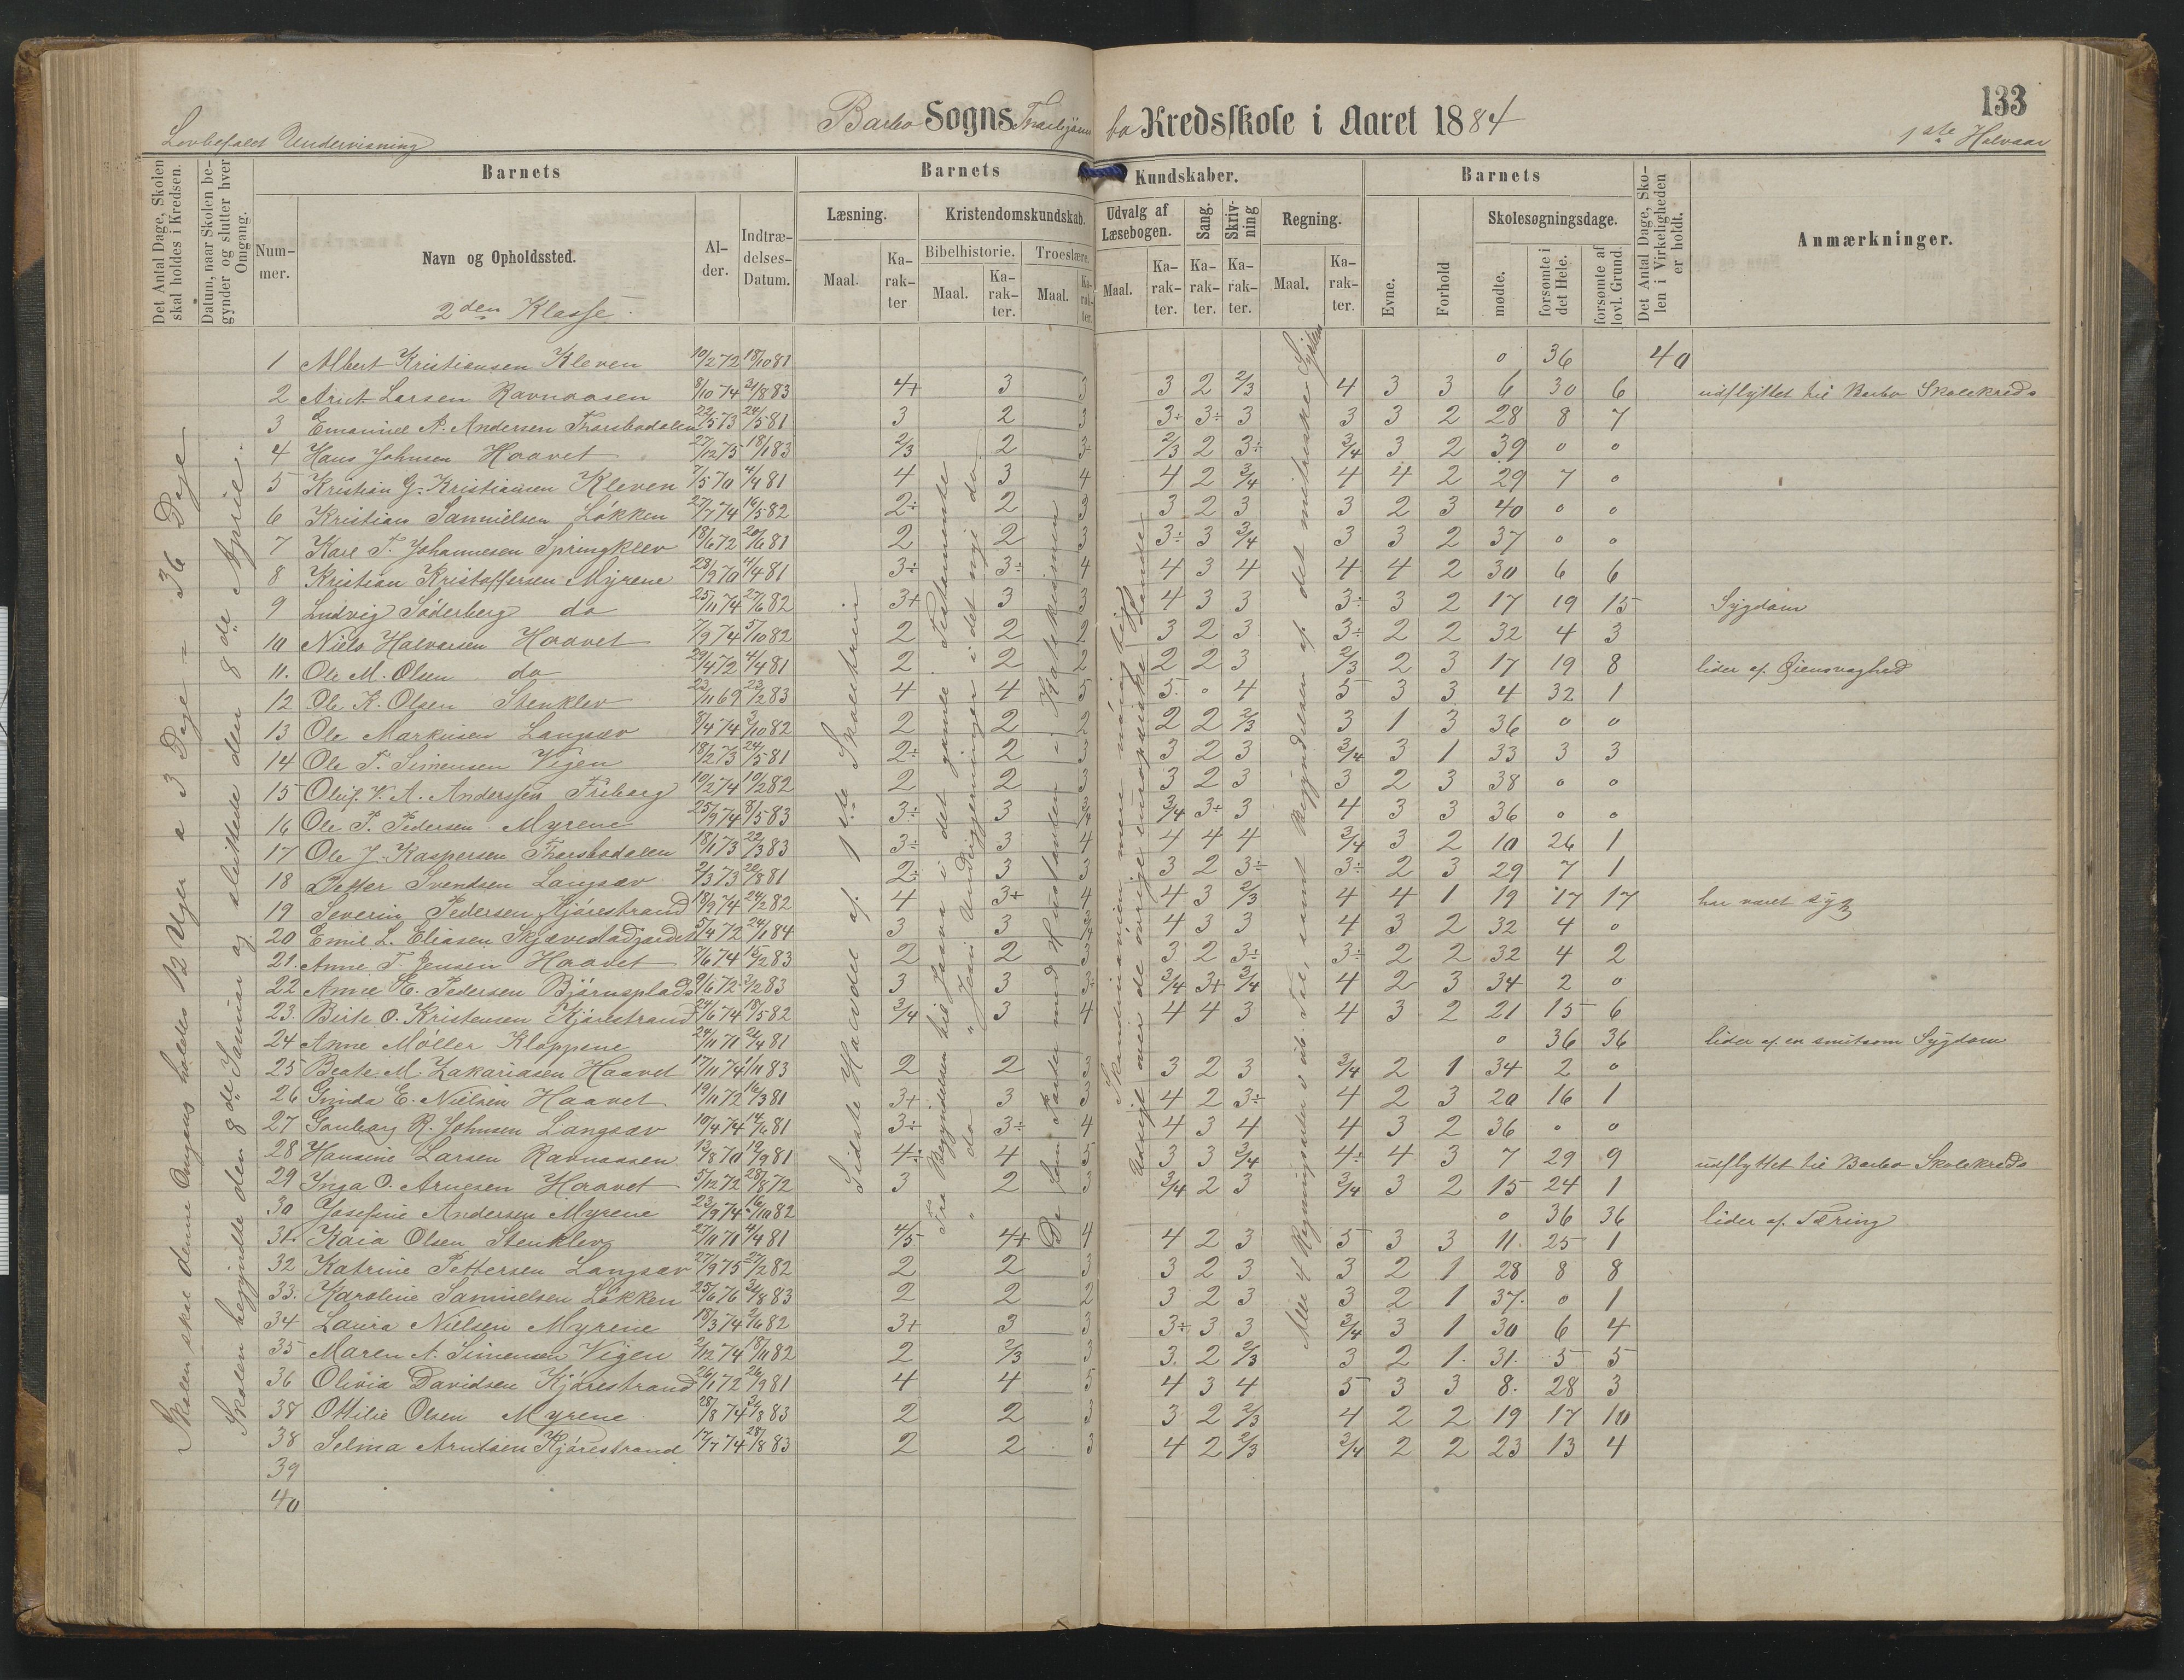 133
Barbo Sogns Thorbjørns bo Kredsskole i Aaret 1884
Lovbefalet Undervisning
1ste Halvaar
Det Antal Dage, Skolen skal holdes i Kredsen.
Datum, naar Skolen begynder og slutter hver Omgang.
Barnets
Nummer.
Navn og Opholdssted.
2den Klasse.
Alder.
Indtrædelses-Datum.
Barnets Kundskaber.
Læsning.
Maal.
Karakter
Kristendomskundskab.
Bibelhistorie.
Maal.
Karakter.
Troeslære.
Maal.
Karakter.
Udvalg af Læsebogen.
Maal.
Karakter.
Sang.
Karakter.
Skrivning
Karakter.
Regning.
Maal.
Karakter.
Barnets
Evne.
Forhold
Skolesøgningsdage.
mødte.
forsømte i det Hele.
forsømte af lovl. Grund.
Det Antal Dage, Skolen i Virkeligheden er holdt.
Anmærkninger.
Skolen skal denne Omgang holdes 12 Uger a 3 Dage = 36 Dage
Skolen begyndte den 8de Januar og sluttede den 8de April.
Sidste Halvdel af 1ste Skoletrin
Fra Begyndelsen til Josva i det gamle Testamente
" do " Jesu Undergjerninger i det nye do
De fem Parter med Hustavlen i Katekismen
Skandinavien mere nøiagtig
Udsigt over de øvrige europæiske Lande
Alle 4 Regningsarter i ub. Tal, samt Begyndelsen af det metriske System
1 Albert Kristiansen Kleven 10/2 72 18/10 81 0 36 40
2 Arnt Larsen Ravnaasen 8/10 74 31/8 83 4+ 3 3 3 2 2/3 4 3 3 6 30 6 udflyttet til Barbo Skolekreds
3 Emanuel A. Andersen Thorsbodalen 22/5 73 24/5 81 3 2 3 3÷ 3÷ 3 3 3 2 28 8 7
4 Hans Johnsen Haavet 27/12 75 18/1 83 2/3 2 3÷ 2/3 2 3÷ 3/4 3 2 39 0 0
5 Kristian G. Kristiansen Kleven 7/5 70 4/4 81 4 3 4 4 2 3/4 4 4 2 29 7 0
6 Kristian Samuelsen Løkken 27/7 74 16/5 82 2÷ 2 3 3 2 3 3 2 3 40 0 0
7 Karl T. Johannesen Springklev 18/6 72 20/6 81 2 2 3 3÷ 3 3/4 3 3 2 37 0 0
8 Kristian Kristoffersen Myrene 28/9 70 4/4 81 3÷ 3÷ 4 4 3 4 4 4 2 30 6 6
9 Ludvig Søderberg do 25/11 74 27/6 82 3+ 3 3 4 3 3 3÷ 3 2 17 19 15 Sygdom
10 Niels Halvorsen Haavet 7/9 74 5/10 82 2 2 2 3 2 3 3÷ 2 2 32 4 3
11. Ole M. Olsen do 29/4 72 4/4 81 2 2 2 2 2 3 2/3 2 3 17 19 8 lider af Øiensvaghed
12 Ole K. Olsen Stenklev 23/11 69 23/2 83 4 4 5 5 0 4 5 3 3 4 32 1
13 Ole Markusen Langsæv 8/4 74 3/10 82 2 2 2 2 2 2/3 3 1 3 36 0 0
14 Ole T. Simensen Vigen 18/2 73 24/5 81 2÷ 2 3 3 2 3 3/4 3 1 33 3 3
15 Oluf. V. A. Anderssen Friborg 10/2 74 10/2 82 2 2 3 3 2 3 3 2 3 38 0 0
16 Ole P. Pedersen Myrene 25/9 74 8/5 83 3÷ 3 3/4 3/4 3÷ 3 4 3 3 36 0 0
17 Ole J. Kaspersen Thorsbodalen 18/1 73 22/3 83 3÷ 3 4 4 4 4 3/4 3 2 10 26 1
18 Petter Svendsen Langsæv 2/3 73 20/8 81 2÷ 3 3 3 2 3÷ 3÷ 2 3 29 7 1
19 Severin Pedersen Kjørestrand 18/9 74 24/2 82 4 3+ 4 4 3 2/3 4 4 1 19 17 17 har været syg
20 Emil L. Eliasen Skjævestadgaardet 5/4 72 24/1 84 3 3 3/4 4 3 3 4 3 2 32 4 0
21. Anne T. Jensen Haavet 7/6 74 15/2 83 2 2 3 3 2 3÷ 3÷ 2 2 32 4 2
22 Anne E. Pedersen Bjørnsplads 9/6 72 2/2 83 3 3 3÷ 3/4 3+ 3/4 4 2 3 34 2 0
23. Berte O. Kristensen Kjørestrand 24/6 74 18/5 82 3/4 3 4 4 4 3 4 3 2 21 15 6
24 Anne Møller Kloppene 24/11 71 26/4 81 0 36 36 lider af en smitsom Sygdom
25 Beate M. Zakariasen Haavet 17/11 74 1/11 83 2 2 3 3 2 3 3/4 2 1 34 2 0
26 Gunda E. Nielsen Haavet 19/11 72 16/3 81 3+ 3 3 4 2 3÷ 4 2 3 20 16 1
27 Gunborg R. Johnsen Langsæv 10/4 74 14/6 81 3÷ 3÷ 4 4 3 4 4 3 2 36 0 0
28 Hansine Larsen Ravnaasen 13/8 70 19/9 81 4÷ 4 5 3 3 3/4 4÷ 4 3 7 29 9 udflyttet til Barbo Skolekreds
29 Inga O. Arnesen Haavet 5/12 72 28/8 72 3 2 3 3/4 2 3 3/4 3 2 15 24 1
30 Josefine Andersen Myrene 23/9 74 16/10 82 0 36 36 lider af Tæring
31. Kaia Olsen Stenklev 27/11 71 4/4 81 4/5 4+ 4 4 2 3 5 3 3 11. 25 1
32 Katrine Pettersen Langsæv 27/9 75 27/2 82 2 2 3 3 2 3 3 2 1 28 8 8
33. Karoline Samuelsen Løkken 25/6 76 31/8 83 2 2 2 3 2 3 3 2 1 37. 0 1
34 Laura Nielsen Myrene 18/3 74 2/6 82 3+ 3 3 3÷ 3 3 3/4 3 1 30 6 4
35 Maren N. Simensen Vigen 2/12 74 18/11 82 2 2/3 3 3. 2 2/3 3 2 1. 31. 5 5
36 Olivia Davidsen Kjørestrand 26/1 72 26/9 81 4 4 5 4 3 4 5 3 3 8. 28 3
38 Ottilie Olsen Myrene 28/8 74 31/8 83 2 2 3 3 2 2/3 4 2 2 19 17 10
38 Selma Arntsen Kjørestrand 17/7 74 28/8 83 2 2 3 4 2 2/3 3/4 2 2 23 13 4
39
40